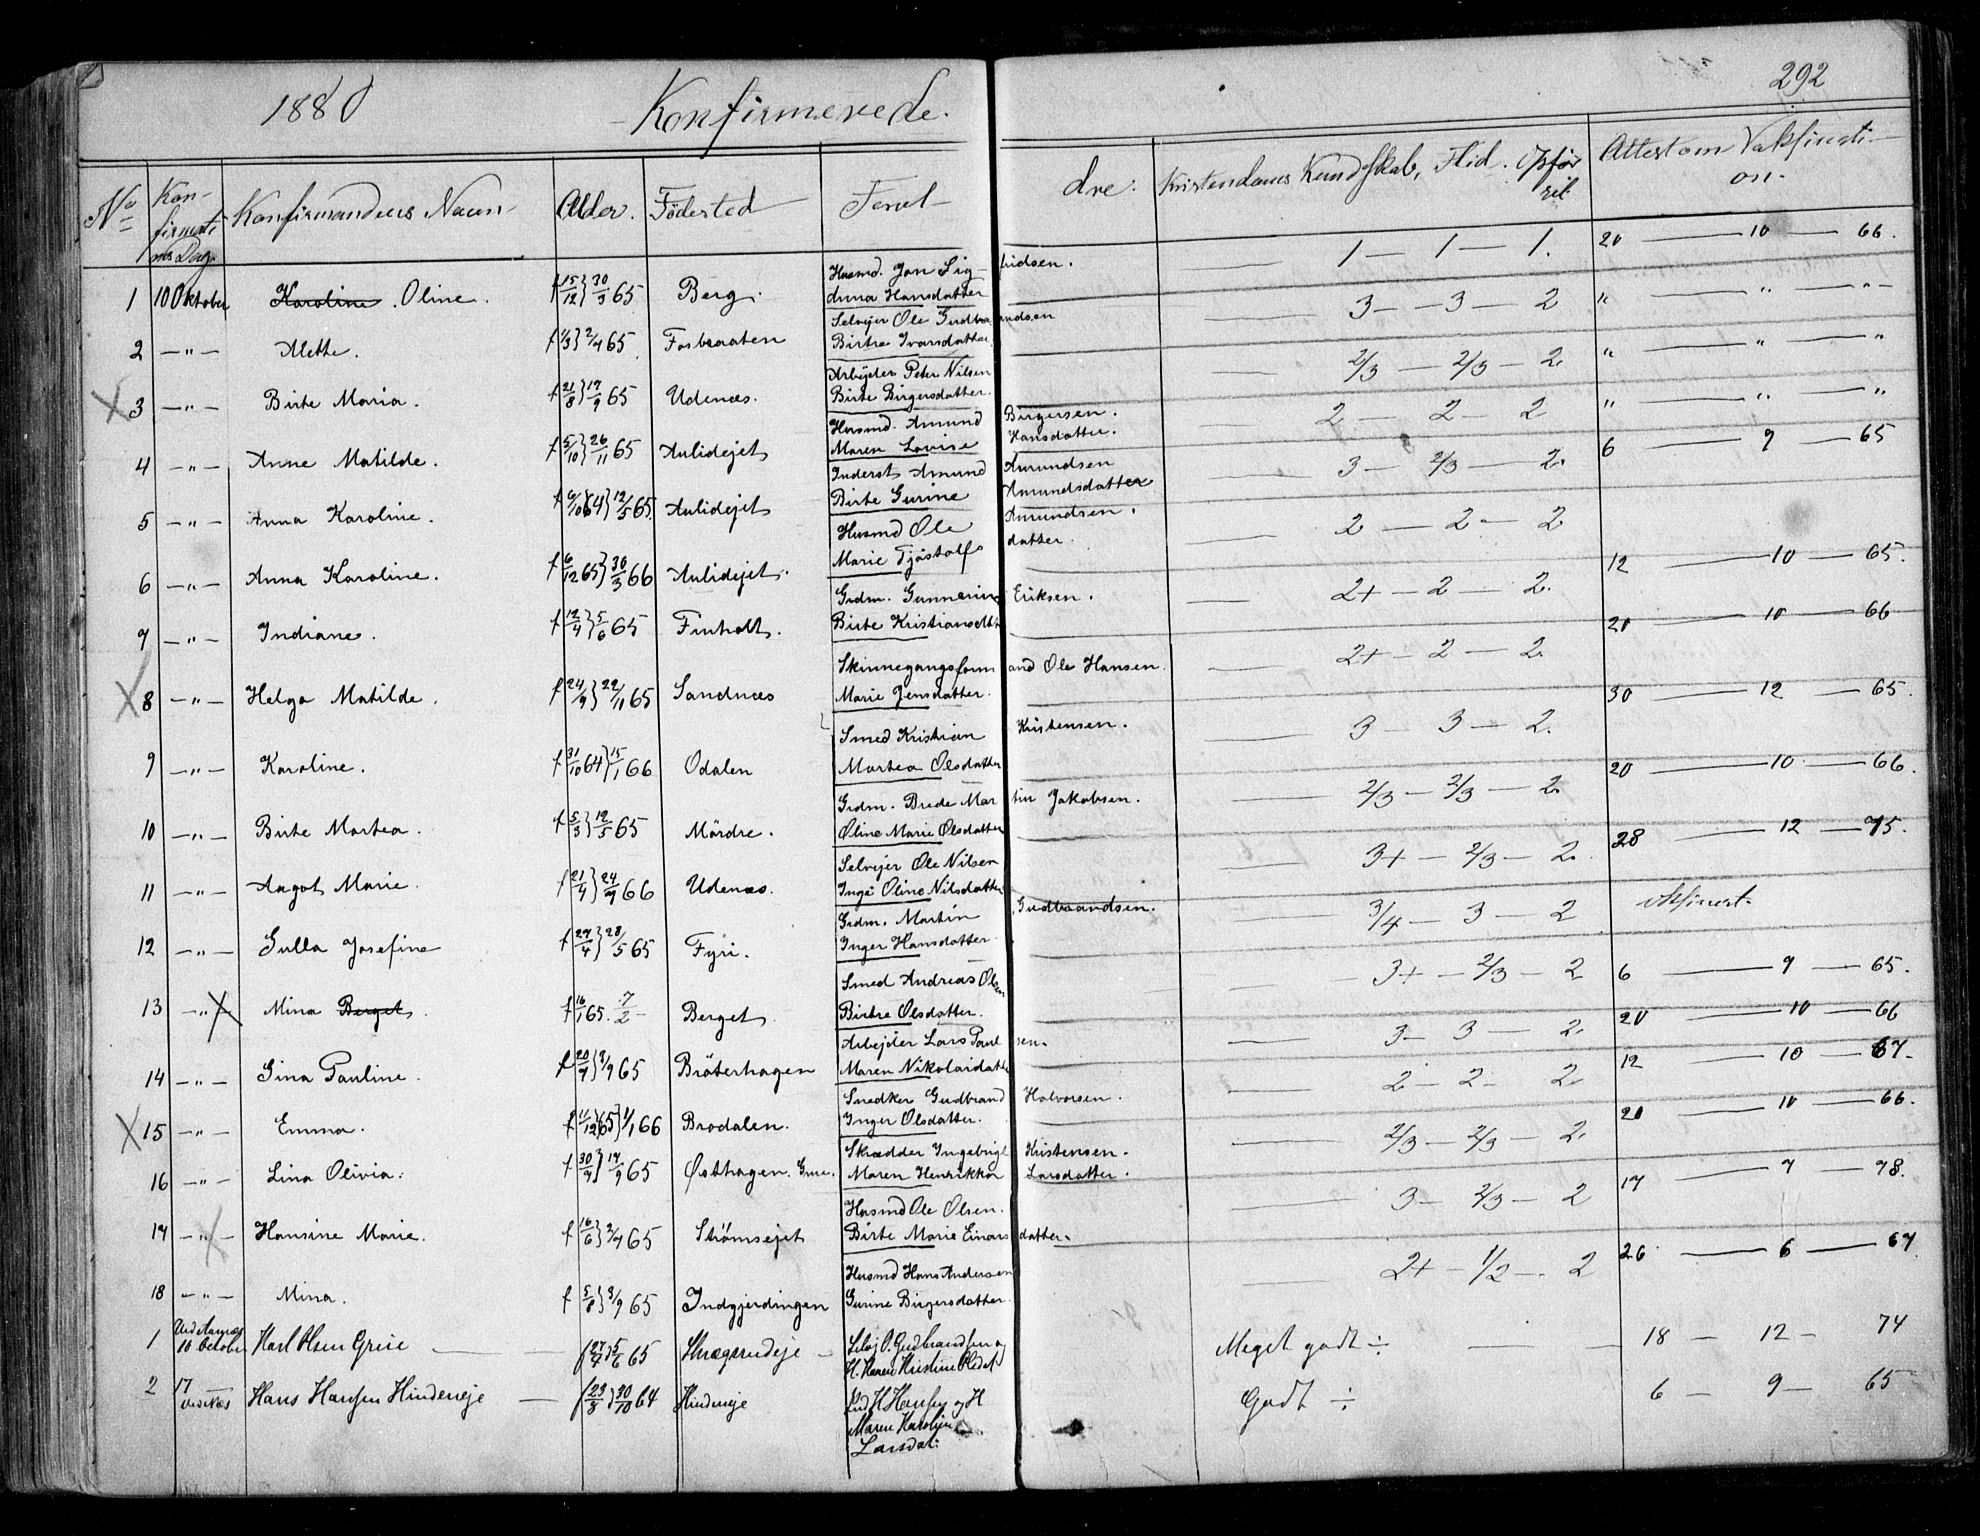 1880 Konfirmerede. 292
No Konfirmations Dag Konfirmandens Navn Alder. Födested Forel- dre. Kristendoms Kundskab, Flid. Opførsel Attest om Vaksination.
1 10 Oktober Karoline. Oline. f 15/12} 30/3 65 Berg. Husmd. Jon Sig- fridsen. — 1 — 1 — 1. 20 — 10 — 66.
Anna Hansdatter
2 — " — Mette. f 1/3} 2/4 65 Fosbraaten Selvejer Ole Gudbra andsen — 3 — 3 — 2 " — " — " —
Birtre Ivarsdatter
3 — " — Birte Maria. f 21/8} 17/9 65 Udenæs. Arbejder Peter Nilsen 2/3 — 2/3 — 2. " — " — "
Birte Birgersdatter.
4 — " — Anne Matilde. f 5/10} 26/11 65 Aulidejet Husmd. Amund Birgersen. 2 — 2 — 2 " — " — "
Maren Lovise Hansdatter.
5 — " — Anna Karoline. f 6/10 64} 12/5 65. Aulidejet Inderst Amund Amundsen 3 — 2/3 — 2. 6 — 9 — 65
Birte Gurine Amundsdatter
6 — " — Anna Karoline. f 6/12 65} 30/3 66 Aulidejet. Husmd Ole Amundsen. 2 — 2 — 2
Marie Tjöstolfs datter.
7 — " — Indiane. f 12/4} 5/6 65 Finholt. Grdm. Gunnerius Eriksen. — 2+ — 2 — 2. 12 — 10 — 65.
Birte Kristiansdtt
8 — " — Helga Matilde. f 24/9} 22/11 65 Sandnæs Skinnegangsform and Ole Hansen. — 2+ — 2 — 2. 20 — 10 — 66
Marie Jensdatter.
9 — " — Karoline. f 31/10 64} 15/1 66 Odalen Smed Kristian Kristensen. — 3 — 3 — 2. 30 — 12 — 65.
Martea Olsdatter
10 — " — Birte Martea. f 5/3} 12/5 65 Mördre. Grdm. Brede Mar tin Jakobsen. — 2/3 — 2/3 — 2. 20 — 10 — 66.
Oline Marie Olsdatter
11 — " — Aagot Marie. f 21/4} 24/9 66 Udenæs. Selvejer Ole Nilsen — 3+ — 2/3 — 2. 28 — 12 — 75.
Inge Oline Nilsdatter
12 — " — Gulla Josefine f 29/4} 28/5 65 Fyri. Grdm. Martin Gudbrandsen. — 3/4 — 3 — 2
Inger Hansdatter
13 — " — Mina Berget. f 16/1 65. 7/2 — Berget. Smed Andreas Olsen 3+ — 2/3 — 2 6 — 9 — 65.
Birtre Olsdatter.
14 — " — Gina Pauline. f 20/7} 3/9 65 Bröterhagen Arbejder Lars Paul sen. — 3 — 3 — 2. 20 — 10 — 66
Maren Nikolaidatt
15 — " — Emma. f 11/12 65} 1/1 66 Brodalen. Snedker Gudbrand Halvorsen. — 2 — 2 — 2 12 — 10 — 67.
Inger Olsdatter.
16 — " — Lina Olivia. f 30/7} 17/9 65 Østhagen. Grue. Skrædder Ingebrigt Kristensen. — 2/3 — 2/3 — 2. 20 — 10 — 66.
Maren Henrikka Larsdatter.
17 — " — Hansine Marie. f 16/6} 2/7 65 Strömsejet Husmd Ole Olsen. — 3 — 2/3 — 2 17 — 7 — 78.
Birte Marie Einars datter.
18 — " — Mina. f 5/8} 3/9 65 Indgjerdingen Husmd Hans Andersen — 2+ — 1/2 — 2 26 — 6 — 67
Gurine Birgersdatter.
1 Ved Aarnæs 10 October Karl Olsen Grue — f 27/4} 5/6 65 Skragsrudeje — Selvj O. Gudbrandsen og Meget godt ÷ — — 18 — 12 — 74
H. Karen Kristine Olsdat
2 17 Ved Næs Hans Hansen Hindereje — f 23/8} 30/10 64 Hindereje Ind H Hansen og H Godt ÷ 6 — 9 — 65
Maren Karoline
Larsdat: